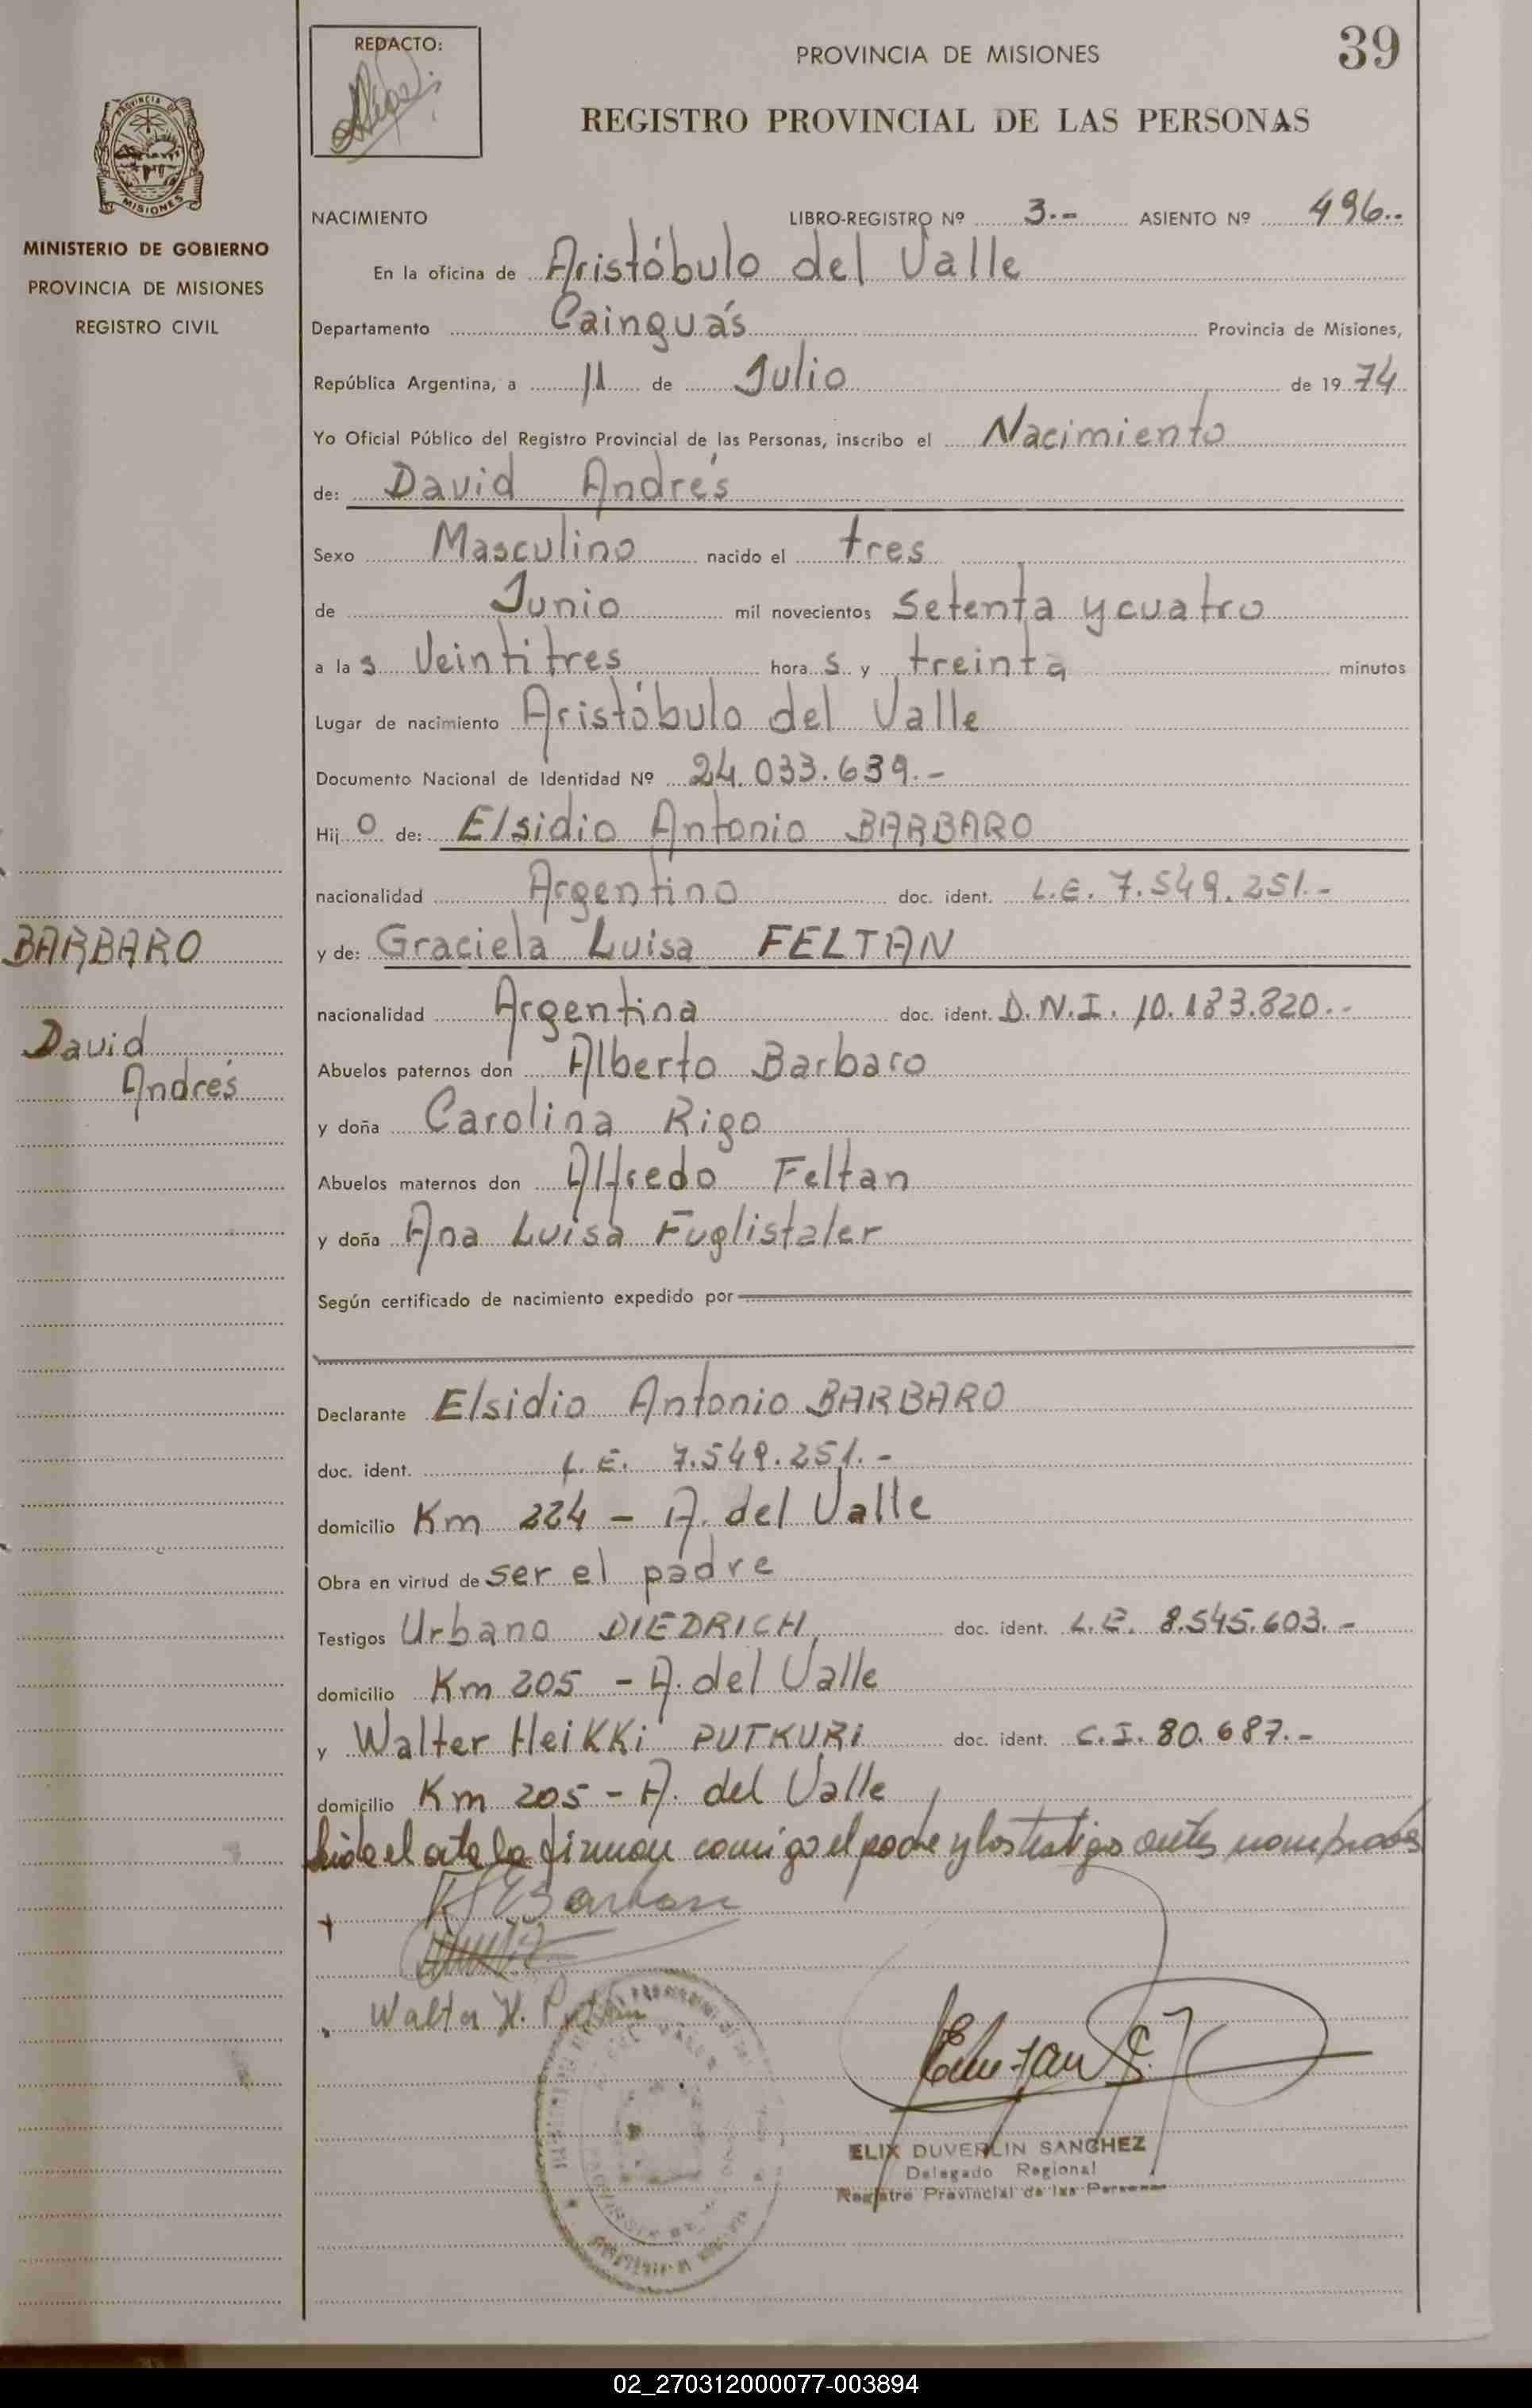 REDACTO:
PROVINCIA DE MISIONES
39
REGISTRO PROVINCIAL DE LAS PERSONAS
PROVINCIA DE
MISIONES
MINISTERIO DE GOBIERNO
PROVINCIA DE MISIONES
REGISTRO CIVIL
NACIMIENTO LIBRO-REGISTRO Nº 3.- ASIENTO Nº 496..
En la oficina de Aristóbulo del Valle
Departamento Cainguás Provincia de Misiones,
República Argentina, a 11 de Julio de 1974
Yo Oficial Público del Registro Provincial de las Personas, inscribo el Nacimiento
de: David Andrés
Sexo Masculino nacido el tres
de Junio mil novecientos setenta y cuatro
a las Veintitres horas y treinta minutos
Lugar de nacimiento Aristóbulo del Valle
Documento Nacional de Identidad Nº 24.033.639.-
Hijo de: Elsidio Antonio BARBARO
nacionalidad Argentino doc. ident. L.E. 7.549.251.-
BARBARO
y de: Graciela Luisa FELTAN
nacionalidad Argentina doc. ident. D.N.I. 10.183.820.-
David
Andrés
Abuelos paternos don Alberto Barbaro
y doña Carolina Rigo
Abuelos maternos don Alfredo Feltan
y doña Ana Luisa Fuglistaler
Según certificado de nacimiento expedido por
Declarante Elsidio Antonio BARBARO
doc. ident. L.E. 7.549.251.-
domicilio Km 224 - A. del Valle
Obra en virtud de ser el padre
Testigos Urbano DIEDRICH doc. ident. L.E. 8.545.603.-
domicilio Km 205 - A. del Valle
y Walter Heikki PUTKURI doc. ident. C.I. 80.687.-
domicilio Km 205 - A. del Valle
Leida el acta la firman comigo el padre y los testigo antes nombrados
Walter H.
ELIX DUVERLIN SANCHEZ
Delegado Regional
Registro Provincial de las Personas
02_270312000077-003894